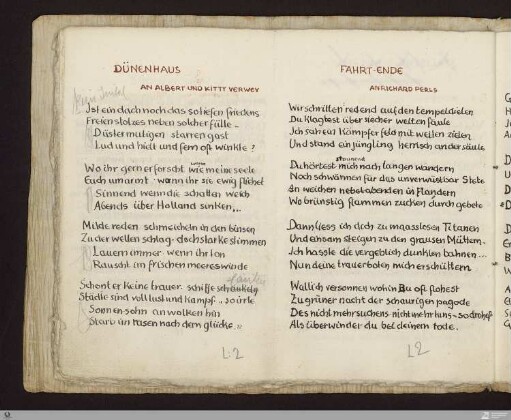 DÜNENHAUS
AN ALBERT UND KITTY VERWEY
Ist ein dach noch das so tiefen friedens
Freien stolzes neben solcher fülle –
Düstermutigen starren gast
Lud und hielt und fern oft winkte?
Wo ihr gern erforscht wie meine seele
Euch umarmt · wann ihr sie ewig flöhet
Sinnend wenn die schatten weich
Abends über Holland sinken...
Milde reden schmeicheln in den binsen
Zu der wellen schlag · doch starke stimmen
Lauern immer wenn ihr lon
Rauscht im frischen meereswinde
Schont er keine trauer · schiffe schaukeln
Städte sind voll lust und kampf .. so irrte
Sonnen-sohn an wolken hin
Starb im rasen nach dem glücke..
L. 2
FAHRT-ENDE
AN RICHARD PERLS
Wir schrillten redend auf den tempeldielen
Du klagtest über siecher welten fäule
Ich sah ein kämpferfeld mit weiten zielen
Und stand ein jüngling herrisch an der säule
staunend
Du hörtest mich nach langen wandern
Noch schwärmen für das unverwüstbar Stete
An weichen nebelabenden in Flandern
Wo brünstig flammen zucken durch gebete
Dann liess ich dich zu maasslosen Titanen
Und einsam steigen zu den grausen Müttern.
Ich hasste die vergeblich dunklen bahnen...
Nun deine trauerboten mich erschüttern
Wall ich versonnen wohin Du oft flohest
Zu grüner nacht der schaurigen pagode
Des nicht mehr suchens · nicht mehr tuns – so drohst
Als überwinder du bei deinem tode.
L 2